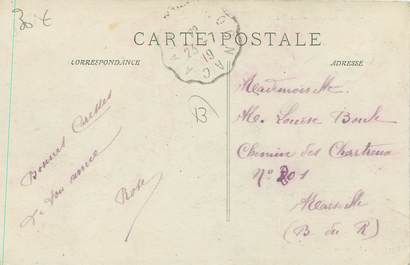 30 €
CARTE POSTALE
CORRESPONDANCE
ADRESSE
23
19
B
Bonnes Caresses
De ton amie
Rose
Mademoiselle
Me. Louise
Chemin des Chartreux
N° 201
Marseille
(B du R)